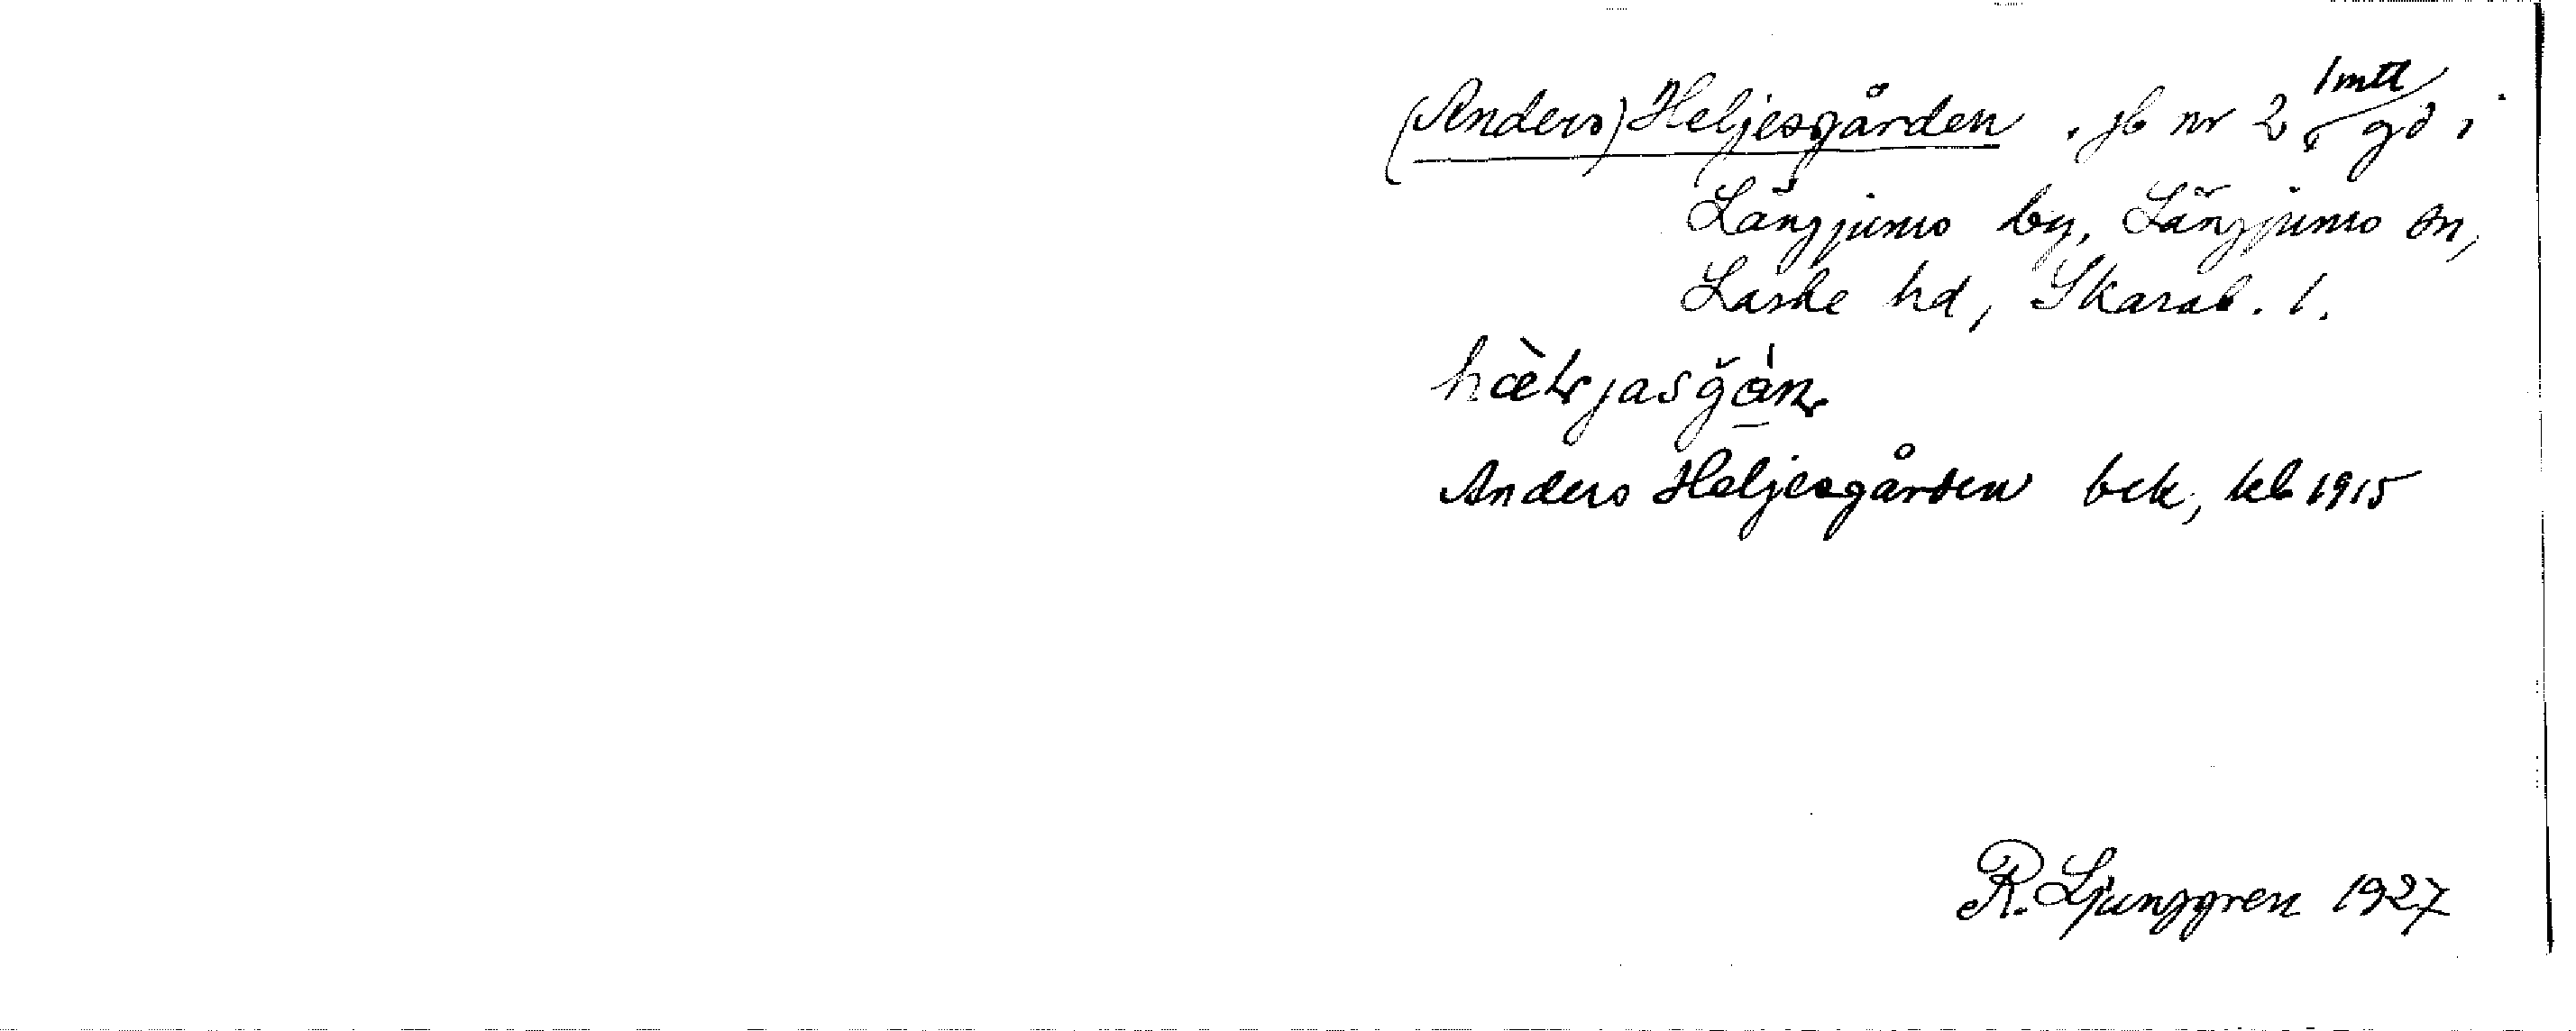 (Anders) Heljesgården . jb nr 2 1 mtl gd i
Långjums by, Längjums sn,
Laske hd, Skarab. l.
hæ̀ljasgǻn
Anders Heljesgården bek, kb 1915
R. Ljunggren 1927